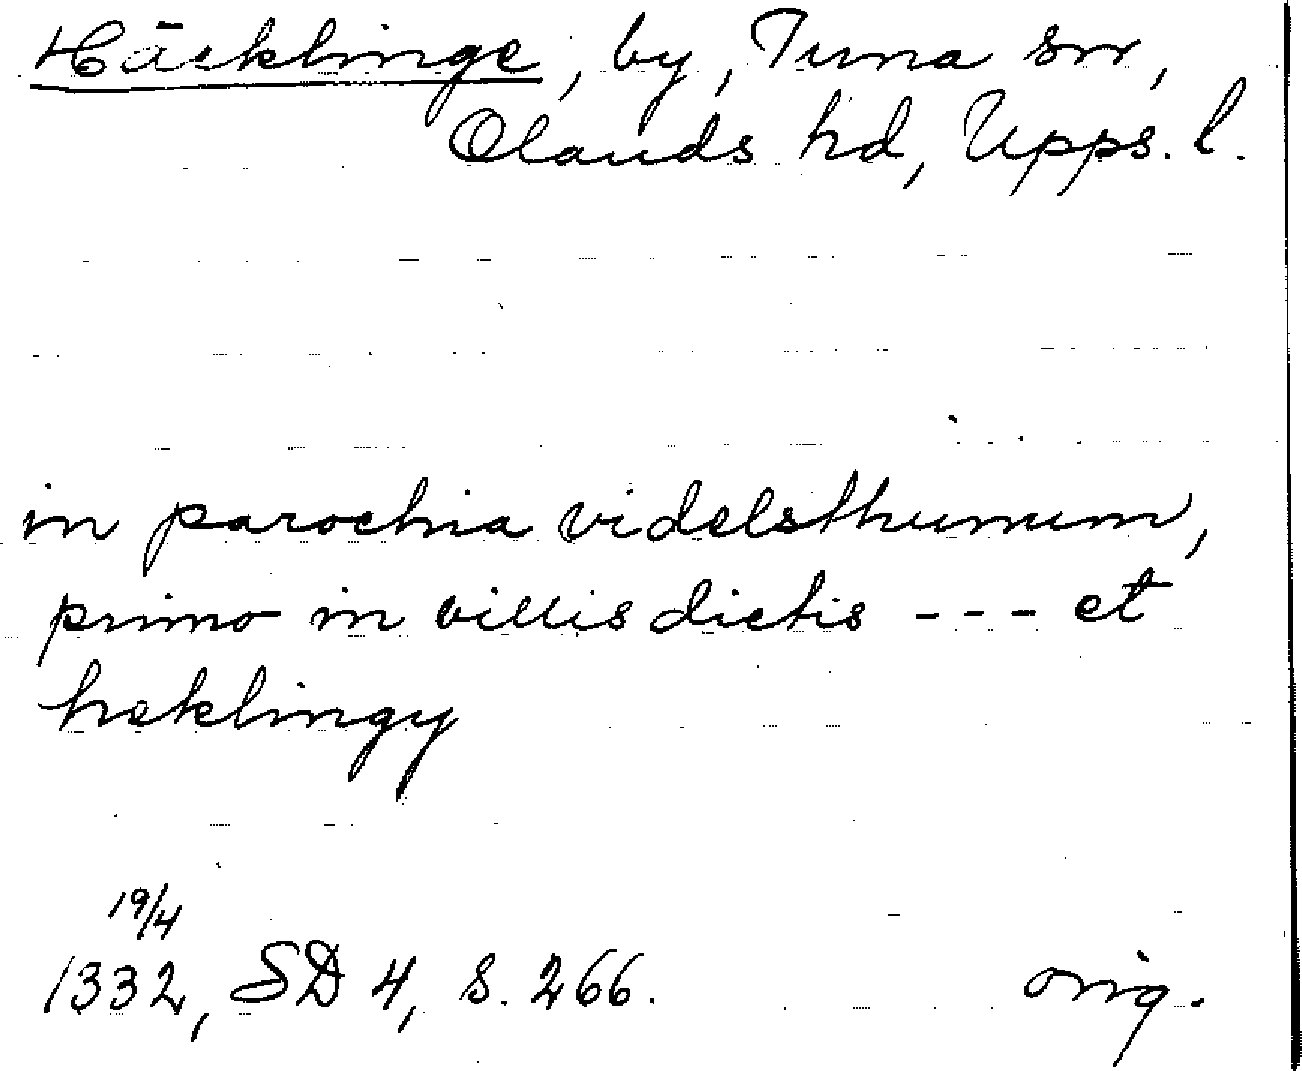 Häcklinge, by, Tuna sn,
Olands hd, Upps. l.
in parochia videlsthunum,
primo in villis dictis - - - et
heklingy
19/4
1332, SD 4, s. 266. orig.